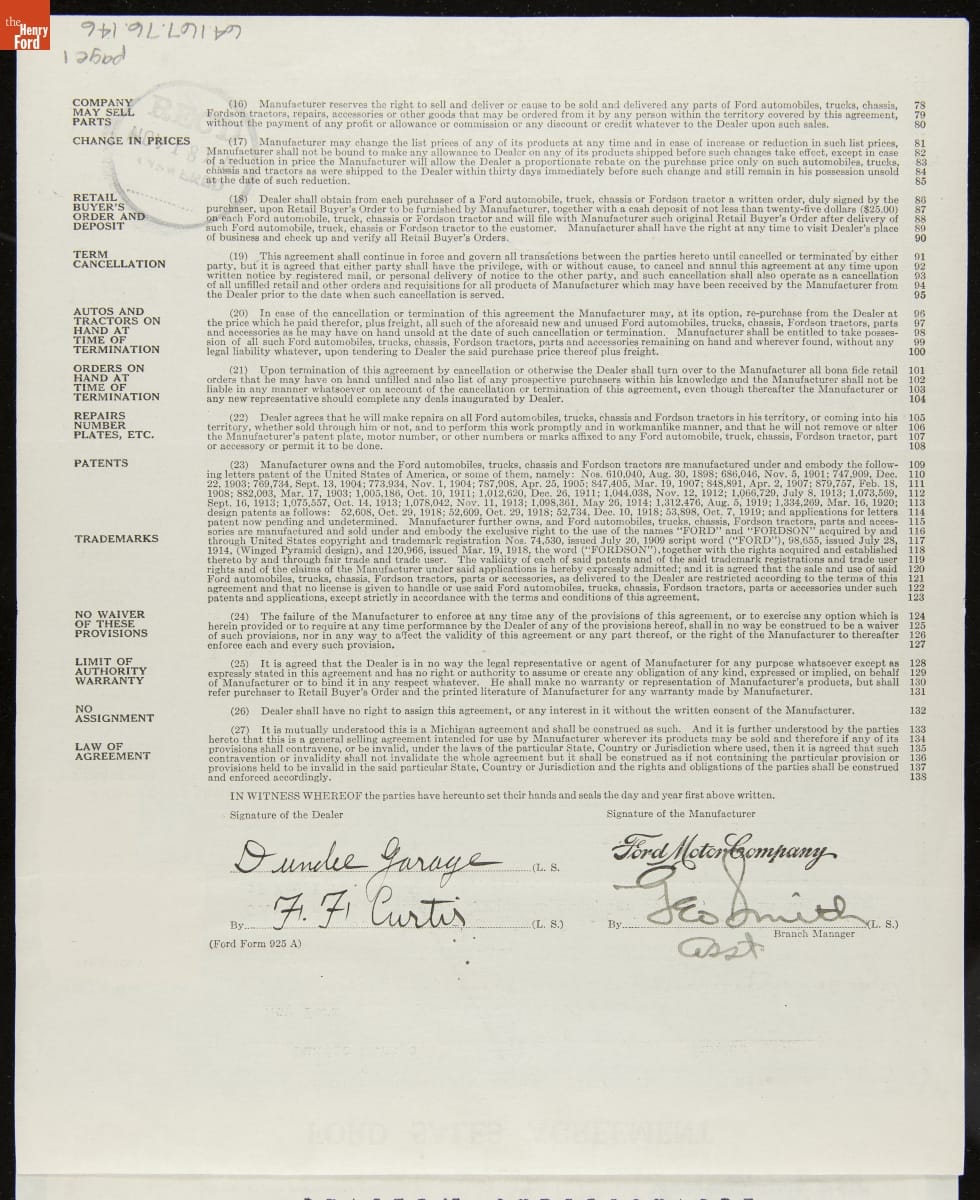 the
Henry
Ford
64.167.76.146
page 1
COMPANY
MAY SELL
PARTS
(16) Manufacturer reserves the right to sell and deliver or cause to be sold and delivered any parts of Ford automobiles, trucks, chassis, 78
Fordson tractors, repairs, accessories or other goods that may be ordered from it by any person within the territory covered by this agreement, 79
without the payment of any profit or allowance or commission or any discount or credit whatever to the Dealer upon such sales. 80
CHANGE IN PRICES
(17) Manufacturer may change the list prices of any of its products at any time and in case of increase or reduction in such list prices, 81
Manufacturer shall not be bound to make any allowance to Dealer on any of its products shipped before such changes take effect, except in case 82
of a reduction in price the Manufacturer will allow the Dealer a proportionate rebate on the purchase price only on such automobiles, trucks, 83
chassis and tractors as were shipped to the Dealer within thirty days immediately before such change and still remain in his possession unsold 84
at the date of such reduction. 85
RETAIL
BUYER'S
ORDER AND
DEPOSIT
(18) Dealer shall obtain from each purchaser of a Ford automobile, truck, chassis or Fordson tractor a written order, duly signed by the 86
purchaser, upon Retail Buyer's Order to be furnished by Manufacturer, together with a cash deposit of not less than twenty-five dollars ($25.00) 87
on each Ford automobile, truck, chassis or Fordson tractor and will file with Manufacturer such original Retail Buyer's Order after delivery of 88
such Ford automobile, truck, chassis or Fordson tractor to the customer. Manufacturer shall have the right at any time to visit Dealer's place 89
of business and check up and verify all Retail Buyer's Orders. 90
TERM
CANCELLATION
(19) This agreement shall continue in force and govern all transactions between the parties hereto until cancelled or terminated by either 91
party, but it is agreed that either party shall have the privilege, with or without cause, to cancel and annul this agreement at any time upon 92
written notice by registered mail, or personal delivery of notice to the other party, and such cancellation shall also operate as a cancellation 93
of all unfilled retail and other orders and requisitions for all products of Manufacturer which may have been received by the Manufacturer from 94
the Dealer prior to the date when such cancellation is served. 95
AUTOS AND
TRACTORS ON
HAND AT
TIME OF
TERMINATION
(20) In case of the cancellation or termination of this agreement the Manufacturer may, at its option, re-purchase from the Dealer at 96
the price which he paid therefor, plus freight, all such of the aforesaid new and unused Ford automobiles, trucks, chassis, Fordson tractors, parts 97
and accessories as he may have on hand unsold at the date of such cancellation or termination. Manufacturer shall be entitled to take posses- 98
sion of all such Ford automobiles, trucks, chassis, Fordson tractors, parts and accessories remaining on hand and wherever found, without any 99
legal liability whatever, upon tendering to Dealer the said purchase price thereof plus freight. 100
ORDERS ON
HAND AT
TIME OF
TERMINATION
(21) Upon termination of this agreement by cancellation or otherwise the Dealer shall turn over to the Manufacturer all bona fide retail 101
orders that he may have on hand unfilled and also list of any prospective purchasers within his knowledge and the Manufacturer shall not be 102
liable in any manner whatsoever on account of the cancellation or termination of this agreement, even though thereafter the Manufacturer or 103
any new representative should complete any deals inaugurated by Dealer. 104
REPAIRS
NUMBER
PLATES, ETC.
(22) Dealer agrees that he will make repairs on all Ford automobiles, trucks, chassis and Fordson tractors in his territory, or coming into his 105
territory, whether sold through him or not, and to perform this work promptly and in workmanlike manner, and that he will not remove or alter 106
the Manufacturer's patent plate, motor number, or other numbers or marks affixed to any Ford automobile, truck, chassis, Fordson tractor, part 107
or accessory or permit it to be done. 108
PATENTS
(23) Manufacturer owns and the Ford automobiles, trucks, chassis and Fordson tractors are manufactured under and embody the follow- 109
ing letters patent of the United States of America, or some of them, namely: Nos. 610,040, Aug. 30, 1898; 686,046, Nov. 5, 1901; 747,909, Dec. 110
22, 1903; 769,646, Sept. 13, 1904; 773,934, Nov. 1, 1904; 787,908, Apr. 25, 1905; 847,405, Mar. 19, 1907; 848,891, Apr. 2, 1907; 879,757, Feb. 18, 111
1908; 882,003, Mar. 17, 1908; 1,005,186, Oct. 10, 1911; 1,012,620, Dec. 26, 1911; 1,044,038, Nov. 12, 1912; 1,066,729, July 8, 1913; 1,073,569, 112
Sept. 16, 1913; 1,075,557, Oct. 14, 1913; 1,078,042, Nov. 11, 1913; 1,098,361, May 26, 1914; 1,312,476, Aug. 5, 1919; 1,334,269, Mar. 16, 1920; 113
design patents as follows: 52,608, Oct. 29, 1918; 52,609, Oct. 29, 1918; 52,734, Dec. 10, 1918; 53,898, Oct. 7, 1919; and applications for letters 114
patent now pending and undetermined. Manufacturer further owns, and Ford automobiles, trucks, chassis, Fordson tractors, parts and acces- 115
sories are manufactured and sold under and embody the exclusive right to the use of the names "FORD" and "FORDSON" acquired by and 116
TRADEMARKS
through United States copyright and trademark registration Nos. 74,530, issued July 20, 1909 script word ("FORD"), 98,655, issued July 28, 117
1914, (Winged Pyramid design), and 120,966, issued Mar. 19, 1918, the word ("FORDSON"), together with the rights acquired and established 118
thereto by and through fair trade and trade user. The validity of each of said patents and of the said trademark registrations and trade user 119
rights and of the claims of the Manufacturer under said applications is hereby expressly admitted; and it is agreed that the sale and use of said 120
Ford automobiles, trucks, chassis, Fordson tractors, parts or accessories, as delivered to the Dealer are restricted according to the terms of this 121
agreement and that no license is given to handle or use said Ford automobiles, trucks, chassis, Fordson tractors, parts or accessories under such 122
patents and applications, except strictly in accordance with the terms and conditions of this agreement. 123
NO WAIVER
OF THESE
PROVISIONS
(24) The failure of the Manufacturer to enforce at any time any of the provisions of this agreement, or to exercise any option which is 124
herein provided or to require at any time performance by the Dealer of any of the provisions hereof, shall in no way be construed to be a waiver 125
of such provisions, nor in any way to affect the validity of this agreement or any part thereof, or the right of the Manufacturer to thereafter 126
enforce each and every such provision. 127
LIMIT OF
AUTHORITY
WARRANTY
(25) It is agreed that the Dealer is in no way the legal representative or agent of Manufacturer for any purpose whatsoever except as 128
expressly stated in this agreement and has no right or authority to assume or create any obligation of any kind, expressed or implied, on behalf 129
of Manufacturer or to bind it in any respect whatever. He shall make no warranty or representation of Manufacturer's products, but shall 130
refer purchaser to Retail Buyer's Order and the printed literature of Manufacturer for any warranty made by Manufacturer. 131
NO
ASSIGNMENT
(26) Dealer shall have no right to assign this agreement, or any interest in it without the written consent of the Manufacturer. 132
LAW OF
AGREEMENT
(27) It is mutually understood this is a Michigan agreement and shall be construed as such. And it is further understood by the parties 133
hereto that this is a general selling agreement intended for use by Manufacturer wherever its products may be sold and therefore if any of its 134
provisions shall contravene, or be invalid, under the laws of the particular State, Country or Jurisdiction where used, then it is agreed that such 135
contravention or invalidity shall not invalidate the whole agreement but it shall be construed as if not containing the particular provision or 136
provisions held to be invalid in the said particular State, Country or Jurisdiction and the rights and obligations of the parties shall be construed 137
and enforced accordingly. 138
IN WITNESS WHEREOF the parties have hereunto set their hands and seals the day and year first above written.
Signature of the Dealer
Signature of the Manufacturer
Dundee Garage (L. S.
Ford Motor Company
By F. F. Curtis (L. S.)
By Geo Smith (L. S.)
Asst Branch Manager
(Ford Form 925 A)